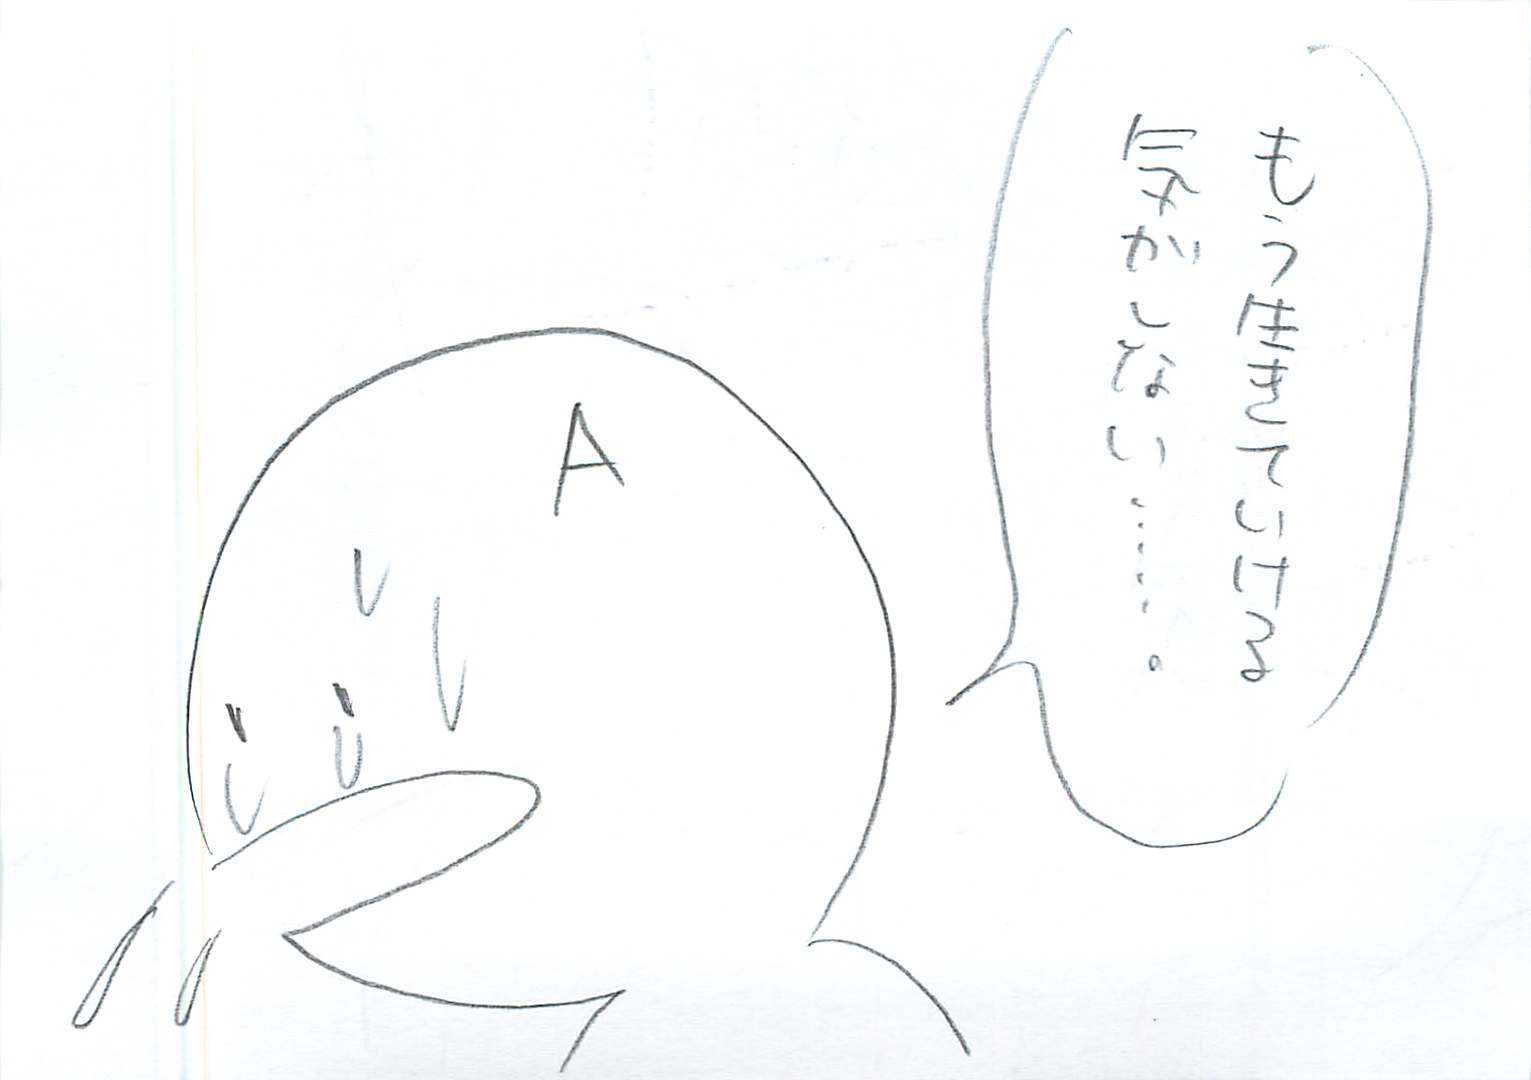 もう生きていける
気がしない……。
A